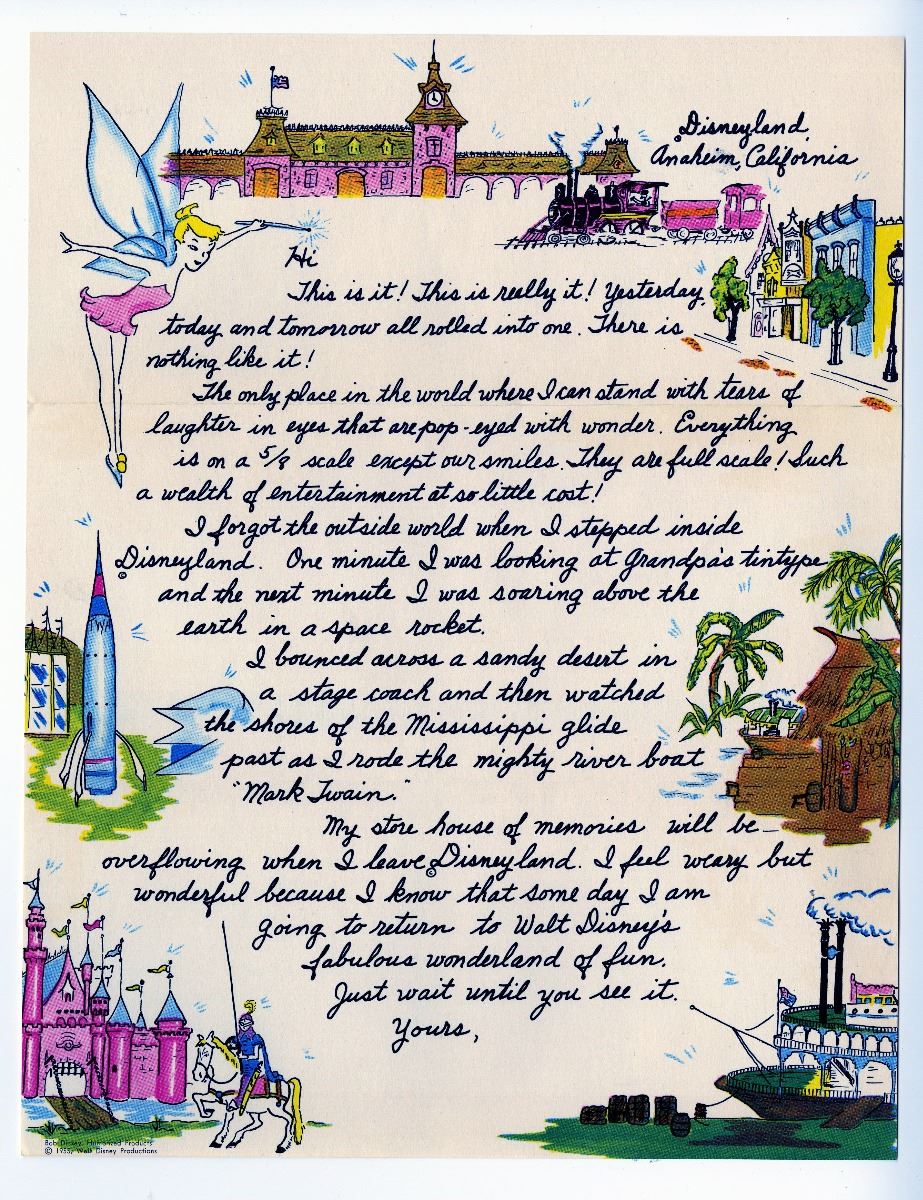 Disneyland,
Anaheim, California
Hi
This is it! This is really it! Yesterday,
today and tomorrow all rolled into one. There is
nothing like it!
The only place in the world where I can stand with tears of
laughter in eyes that are pop-eyed with wonder. Everything
is on a 5/8 scale except our smiles. They are full scale! Such
a wealth of entertainment at so little cost!
I forgot the outside world when I stepped inside
©Disneyland. One minute I was looking at Grandpa's tintype
and the next minute I was soaring above the
earth in a space rocket.
I bounced across a sandy desert in
a stage coach and then watched
the shores of the Mississippi glide
past as I rode the mighty river boat
"Mark Twain."
My store house of memories will be
overflowing when I leave ©Disneyland. I feel weary but
wonderful because I know that some day I am
going to return to Walt Disney's
fabulous wonderland of fun.
Just wait until you see it.
Yours,
Bob Disney, Humorized Products
© 1955, Walt Disney Productions